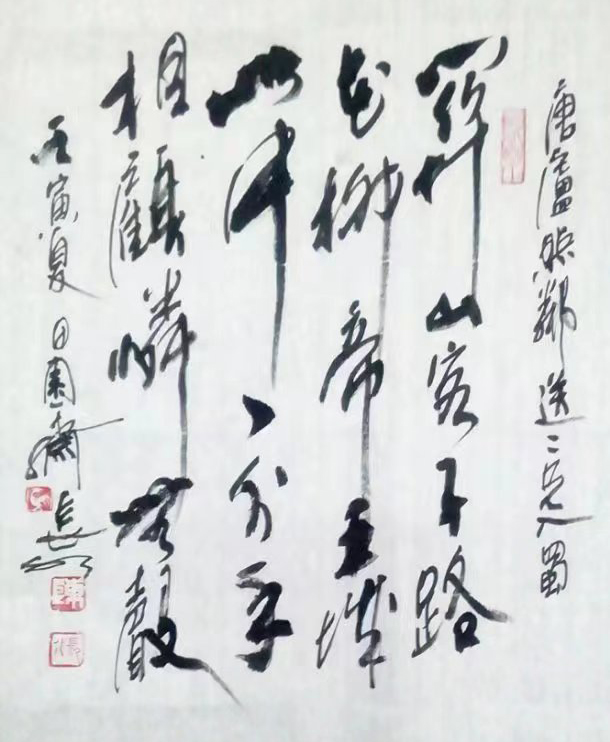 唐盧照鄰送二兄入蜀
關山客子路
花柳帝王城
此中一分手
相顧憐無聲
壬寅夏日